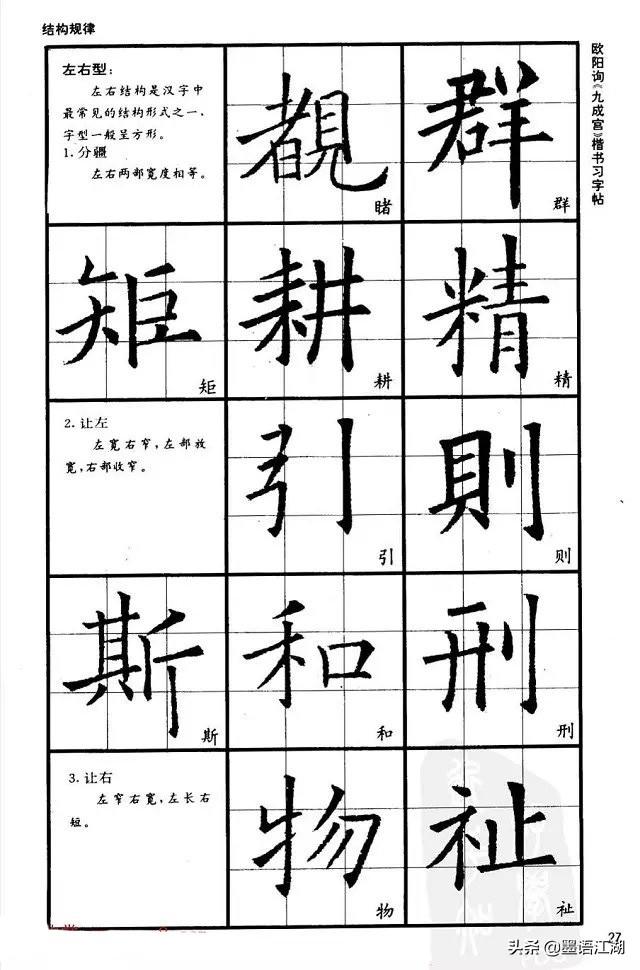 结构规律
欧阳询《九成宫》楷书习字帖
左右型:
左右结构是汉字中
最常见的结构形式之一,
字型一般呈方形。
1. 分疆
左右两部宽度相等。
覩
睹
群
群
矩
矩
耕
耕
精
精
2. 让左
左宽右窄,左部放
宽,右部收窄。
引
引
則
则
斯
斯
和
和
刑
刑
3. 让右
左窄右宽,左长右
短。
物
物
祉
祉
27
头条@墨语江湖